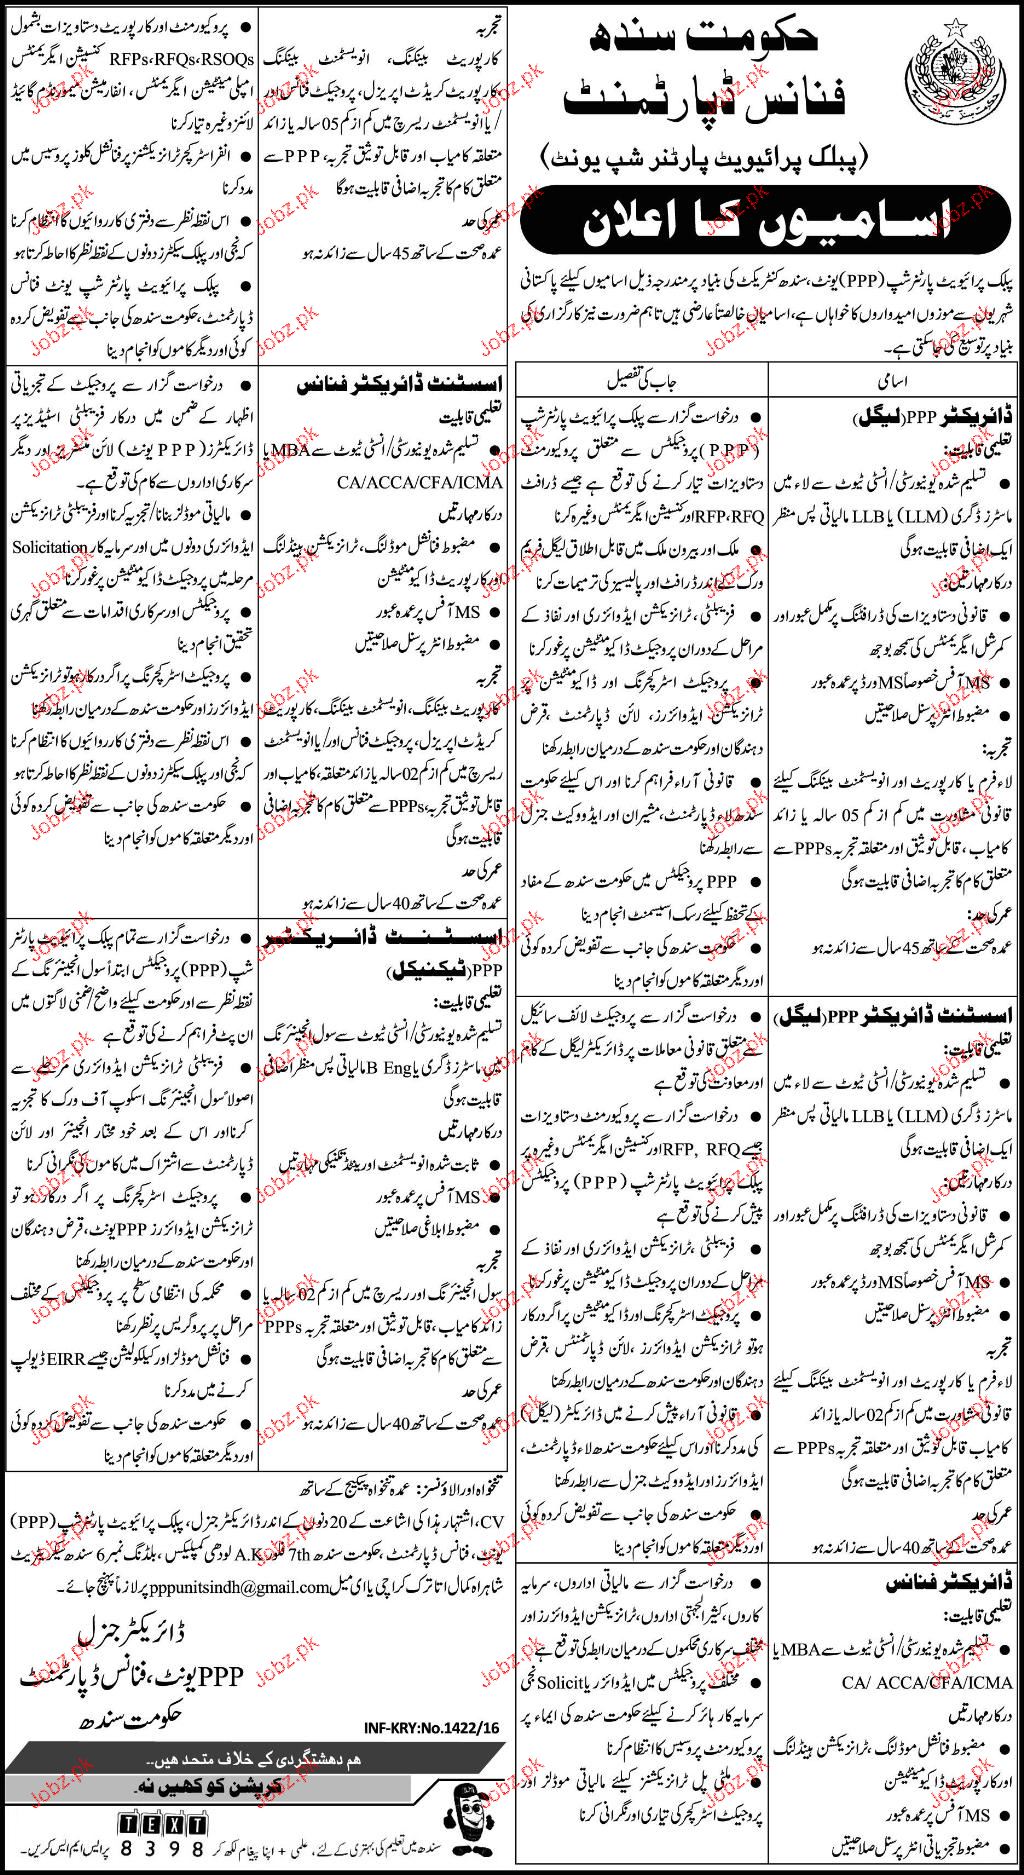 حکومت سندھ
فنانس ڈپارٹمنٹ
(پبلک پرائیویٹ پارٹنر شپ یونٹ)
اسامیوں کا اعلان
پبلک پرائیویٹ پارٹنرشپ (PPP) یونٹ، سندھ کنٹریکٹ کی بنیاد پر مندرجہ ذیل اسامیوں کیلئے پاکستانی
شہریوں سے موزوں امیدواروں کا خواہاں ہے، اسامیاں خالصتاً عارضی ہیں تاہم ضرورت نیز کارگزاری کی
بنیاد پر توسیع کی جاسکتی ہے۔
اسامی
جاب کی تفصیل
ڈائریکٹر PPP (لیگل)
تعلیمی قابلیت:
● تسلیم شدہ یونیورسٹی/انسٹی ٹیوٹ سے لاء میں
ماسٹرز ڈگری (LLM) یا LLB مالیاتی پس منظر
ایک اضافی قابلیت ہوگی
درکار مہارتیں:
● قانونی دستاویزات کی ڈرافٹنگ پر مکمل عبور اور
کمرشل ایگریمنٹس کی سمجھ بوجھ
● MS آفس خصوصاً MS ورڈ پر عمدہ عبور
● مضبوط انٹر پرسنل صلاحیتیں
تجربہ:
لاء فرم یا کارپوریٹ اور انویسٹمنٹ بینکنگ کیلئے
قانونی مشاورت میں کم از کم 05 سالہ یا زائد
کامیاب، قابل توثیق اور متعلقہ تجربہ PPPs سے
متعلق کام کا تجربہ اضافی قابلیت ہوگی
عمر کی حد:
عمدہ صحت کے ساتھ 45 سال سے زائد نہ ہو
● درخواست گزار سے پبلک پرائیویٹ پارٹنرشپ
(PPP) پروجیکٹس سے متعلق پروکیورمنٹ
دستاویزات تیار کرنے کی توقع ہے جیسے ڈرافٹ
RFP،RFQ اور کنسیشن ایگریمنٹس وغیرہ کرنا
● ملک اور بیرون ملک میں قابل اطلاق لیگل فریم
ورک کے اندر ڈرافٹ اور پالیسیز کی ترمیمات کرنا
● فزیبلٹی، ٹرانزیکشن ایڈوائزری اور نفاذ کے
مراحل کے دوران پروجیکٹ ڈاکیومنٹیشن پر غور کرنا
● پروجیکٹ اسٹرکچرنگ اور ڈاکیومنٹیشن پر
ٹرانزیکشن ایڈوائزرز، لائن ڈپارٹمنٹ، قرض
دہندگان اور حکومت سندھ کے درمیان رابطہ رکھنا
● قانونی آراء فراہم کرنا اور اس کیلئے حکومت
سندھ لاء ڈپارٹمنٹ، مشیران اور ایڈووکیٹ جنرل
سے رابطہ رکھنا
● PPP پروجیکٹس میں حکومت سندھ کے مفاد
کے تحفظ کیلئے رسک اسیسمنٹ انجام دینا
● حکومت سندھ کی جانب سے تفویض کردہ کوئی
اور دیگر متعلقہ کاموں کو انجام دینا
اسسٹنٹ ڈائریکٹر PPP (لیگل)
تعلیمی قابلیت:
● تسلیم شدہ یونیورسٹی/انسٹی ٹیوٹ سے لاء میں
ماسٹرز ڈگری (LLM) یا LLB مالیاتی پس منظر
ایک اضافی قابلیت ہوگی
درکار مہارتیں:
● قانونی دستاویزات کی ڈرافٹنگ پر مکمل عبور اور
کمرشل ایگریمنٹس کی سمجھ بوجھ
● MS آفس خصوصاً MS ورڈ پر عمدہ عبور
● مضبوط انٹر پرسنل صلاحیتیں
تجربہ
لاء فرم یا کارپوریٹ اور انویسٹمنٹ بینکنگ کیلئے
قانونی مشاورت میں کم از کم 02 سالہ یا زائد
کامیاب قابل توثیق اور متعلقہ تجربہ PPPs سے
متعلق کام کا تجربہ اضافی قابلیت ہوگی
عمر کی حد
عمدہ صحت کے ساتھ 40 سال سے زائد نہ ہو
● درخواست گزار سے پروجیکٹ لائف سائیکل
سے متعلق قانونی معاملات پر ڈائریکٹر لیگل کے کام
اور معاونت کی توقع ہے
● درخواست گزار سے پروکیورمنٹ دستاویزات
جیسے RFP, RFQ اور کنسیشن ایگریمنٹس وغیرہ پر
پبلک پرائیویٹ پارٹنرشپ (PPP) پروجیکٹس
پیش کرنے کی توقع ہے
● فزیبلٹی، ٹرانزیکشن ایڈوائزری اور نفاذ کے
مراحل کے دوران پروجیکٹ ڈاکیومنٹیشن پر غور کرنا
● پروجیکٹ اسٹرکچرنگ اور ڈاکیومنٹیشن پر اگر درکار
ہو تو ٹرانزیکشن ایڈوائزرز، لائن ڈپارٹمنٹس، قرض
دہندگان اور حکومت سندھ کے درمیان رابطہ رکھنا
● قانونی آراء پیش کرنے میں ڈائریکٹر (لیگل)
کی مدد کرنا اور اس کیلئے حکومت سندھ لاء ڈپارٹمنٹ،
ایڈوائزرز اور ایڈووکیٹ جنرل سے رابطہ رکھنا
● حکومت سندھ کی جانب سے تفویض کردہ کوئی
اور دیگر متعلقہ کاموں کو انجام دینا
ڈائریکٹر فنانس
تعلیمی قابلیت:
● تسلیم شدہ یونیورسٹی/انسٹی ٹیوٹ سے MBA یا
CA/ ACCA/CFA/ICMA
درکار مہارتیں
● مضبوط فنانشل موڈلنگ، ٹرانزیکشن ہینڈلنگ
اور کارپوریٹ ڈاکیومنٹیشن
● MS آفس پر عمدہ عبور
● مضبوط تجزیاتی انٹر پرسنل صلاحیتیں
● درخواست گزار سے مالیاتی اداروں، سرمایہ
کاروں، کثیر الجہتی اداروں، ٹرانزیکشن ایڈوائزرز اور
مختلف سرکاری محکموں کے درمیان رابطہ کی توقع ہے
● مختلف پروجیکٹس میں ایڈوائزر یا Solicit نجی
سرمایہ کار ہائر کرنے کیلئے حکومت سندھ کی ایماء پر
پروکیورمنٹ پروسیس کا انتظام کرنا
● ملٹی پل ٹرانزیکشنز کیلئے مالیاتی موڈلز اور
پروجیکٹ اسٹرکچر کی تیاری اور نگرانی کرنا
تجربہ
کارپوریٹ بینکنگ، انویسٹمنٹ بینکنگ
کارپوریٹ کریڈٹ اپریزل، پروجیکٹ فنانس اور
/یا انویسٹمنٹ ریسرچ میں کم از کم 05 سالہ یا زائد
متعلقہ کامیاب اور قابل توثیق تجربہ، PPP سے
متعلق کام کا تجربہ اضافی قابلیت ہوگا
عمر کی حد
عمدہ صحت کے ساتھ 45 سال سے زائد نہ ہو
● پروکیورمنٹ اور کارپوریٹ دستاویزات بشمول
RFPs،RFQs،RSOQs کنسیشن ایگریمنٹس
امپلی مینٹیشن ایگریمنٹس، انفارمیشن میمورنڈم گائیڈ
لائنز وغیرہ تیار کرنا
● انفراسٹرکچر ٹرانزیکشنز پر فنانشل کلوز پروسیس میں
مدد کرنا
● اس نقطہ نظر سے دفتری کارروائیوں کا انتظام کرنا
کہ نجی اور پبلک سیکٹرز دونوں کے نقطہ نظر کا احاطہ کرتا ہو
● پبلک پرائیویٹ پارٹنر شپ یونٹ فنانس
ڈپارٹمنٹ، حکومت سندھ کی جانب سے تفویض کردہ
کوئی اور دیگر کاموں کو انجام دینا
اسسٹنٹ ڈائریکٹر فنانس
تعلیمی قابلیت
● تسلیم شدہ یونیورسٹی/انسٹی ٹیوٹ سے MBA یا
CA/ACCA/CFA/ICMA
درکار مہارتیں
● مضبوط فنانشل موڈلنگ، ٹرانزیکشن ہینڈلنگ
اور کارپوریٹ ڈاکیومنٹیشن
● MS آفس پر عمدہ عبور
● مضبوط انٹر پرسنل صلاحیتیں
تجربہ
کارپوریٹ بینکنگ، انویسٹمنٹ بینکنگ، کارپوریٹ
کریڈٹ اپریزل، پروجیکٹ فنانس اور/یا انویسٹمنٹ
ریسرچ میں کم از کم 02 سالہ یا زائد متعلقہ، کامیاب اور
قابل توثیق تجربہ، PPPs سے متعلق کام کا تجربہ اضافی
قابلیت ہوگی
عمر کی حد
عمدہ صحت کے ساتھ 40 سال سے زائد نہ ہو
● درخواست گزار سے پروجیکٹ کے تجزیاتی
اظہار کے ضمن میں درکار فزیبلٹی اسٹڈیز پر
ڈائریکٹرز (PPP یونٹ) لائن منسٹریز اور دیگر
سرکاری اداروں سے کام کی توقع ہے۔
● مالیاتی موڈلز بنانا/تجزیہ کرنا اور فزیبلٹی ٹرانزیکشن
ایڈوائزری دونوں میں اور سرمایہ کار Solicitation
مرحلہ میں پروجیکٹ ڈاکیومنٹیشن پر غور کرنا
● پروجیکٹس اور سرکاری اقدامات سے متعلق گہری
تحقیق انجام دینا
● پروجیکٹ اسٹرکچرنگ پر اگر درکار ہو تو ٹرانزیکشن
ایڈوائزرز اور حکومت سندھ کے درمیان رابطہ رکھنا
● اس نقطہ نظر سے دفتری کارروائیوں کا انتظام کرنا
کہ نجی اور پبلک سیکٹرز دونوں کے نقطہ نظر کا احاطہ کرتا ہو
● حکومت سندھ کی جانب سے تفویض کردہ کوئی
اور دیگر متعلقہ کاموں کو انجام دینا
اسسٹنٹ ڈائریکٹر
PPP (ٹیکنیکل)
تعلیمی قابلیت:
تسلیم شدہ یونیورسٹی/انسٹی ٹیوٹ سے سول انجینئرنگ
میں ماسٹرز ڈگری یا B Eng مالیاتی پس منظر اضافی
قابلیت ہوگی
درکار مہارتیں
● ثابت شدہ انویسٹمنٹ اور بینڈ تکنیکی مہارتیں
● MS آفس پر عمدہ عبور
● مضبوط ابلاغی صلاحیتیں
تجربہ
سول انجینئرنگ اور ریسرچ میں کم از کم 02 سالہ یا
زائد کامیاب، قابل توثیق اور متعلقہ تجربہ PPPs
سے متعلق کام کا تجربہ اضافی قابلیت ہوگی
عمر کی حد
عمدہ صحت کے ساتھ 40 سال سے زائد نہ ہو
● درخواست گزار سے تمام پبلک پرائیویٹ پارٹنر
شپ (PPP) پروجیکٹس ابتداً سول انجینئرنگ کے
نقطہ نظر سے اور حکومت کیلئے واضح/ضمنی لاگتوں میں
ان پٹ فراہم کرنے کی توقع ہے
● فزیبلٹی ٹرانزیکشن ایڈوائزری مرحلے سے
اصولاً سول انجینئرنگ اسکوپ آف ورک کا تجزیہ
کرنا اور اس کے بعد خود مختار انجینئر اور لائن
ڈپارٹمنٹ سے اشتراک میں کاموں کی نگرانی کرنا
● پروجیکٹ اسٹرکچرنگ پر اگر درکار ہو تو
ٹرانزیکشن ایڈوائزرز PPP یونٹ، قرض دہندگان
اور حکومت سندھ کے درمیان رابطہ رکھنا
● محکمہ کی انتظامی سطح پر پروجیکٹس کے مختلف
مراحل پر پروگریس پر نظر رکھنا
● فنانشل موڈلز اور کیلکولیشن جیسے EIRR ڈیولپ
کرنے میں مدد کرنا
● حکومت سندھ کی جانب سے تفویض کردہ کوئی
اور دیگر متعلقہ کاموں کو انجام دینا
تنخواہ اور الاؤنسز: عمدہ تنخواہ پیکیج کے ساتھ
CV، اشتہار ہذا کی اشاعت کے 20 دنوں کے اندر ڈائریکٹر جنرل، پبلک پرائیویٹ پارٹنرشپ (PPP)
یونٹ، فنانس ڈپارٹمنٹ، حکومت سندھ 7th فلور، A.K لودھی کمپلیکس، بلڈنگ نمبر 6 سندھ سیکریٹریٹ
شاہراہ کمال اتا ترک کراچی یا ای میل pppunitsindh@gmail.com پر لازماً پہنچ جائے۔
ڈائریکٹر جنرل
PPP یونٹ، فنانس ڈپارٹمنٹ
حکومت سندھ
INF-KRY:No.1422/16
ہم دھشتگردی کے خلاف متحد ھیں...
کرپشن کو کھیں نہ۔
TEXT
8398
سندھ میں تعلیم کی بہتری کے لئے، علمی + اپنا پیغام لکھ کر 8398 پر ایس ایم ایس کریں۔
Jobz.pk